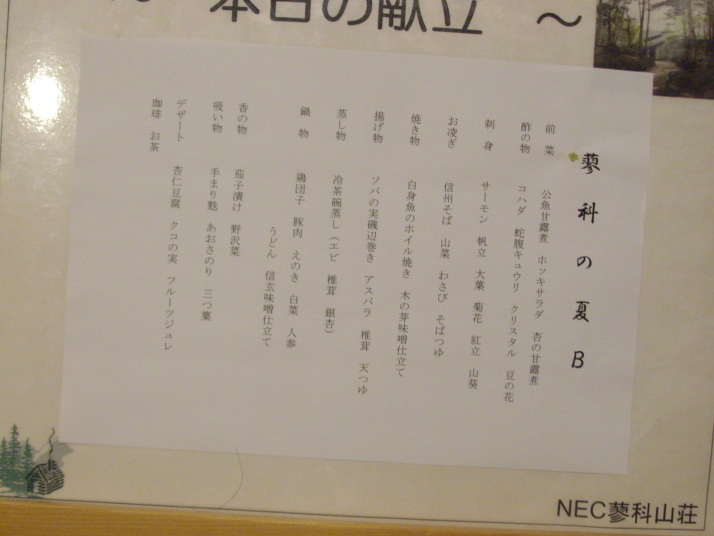 本日の献立 ～
蓼科の夏B
前菜 公魚甘露煮 ホッキサラダ 杏の甘露煮
酢の物 コハダ 蛇腹キュウリ クリスタル 豆の花
刺身 サーモン 帆立 大葉 菊花 紅立 山葵
お凌ぎ 信州そば 山菜 わさび そばつゆ
焼き物 白身魚のホイル焼き 木の芽味噌仕立て
揚げ物 ソバの実磯辺巻き アスパラ 椎茸 天つゆ
蒸し物 冷茶碗蒸し（エビ 椎茸 銀杏）
鍋物 鶏団子 豚肉 えのき 白菜 人参
うどん 信玄味噌仕立て
香の物 茄子漬け 野沢菜
吸い物 手まり麩 あおさのり 三つ葉
デザート 杏仁豆腐 クコの実 フルーツジュレ
珈琲 お茶
NEC蓼科山荘